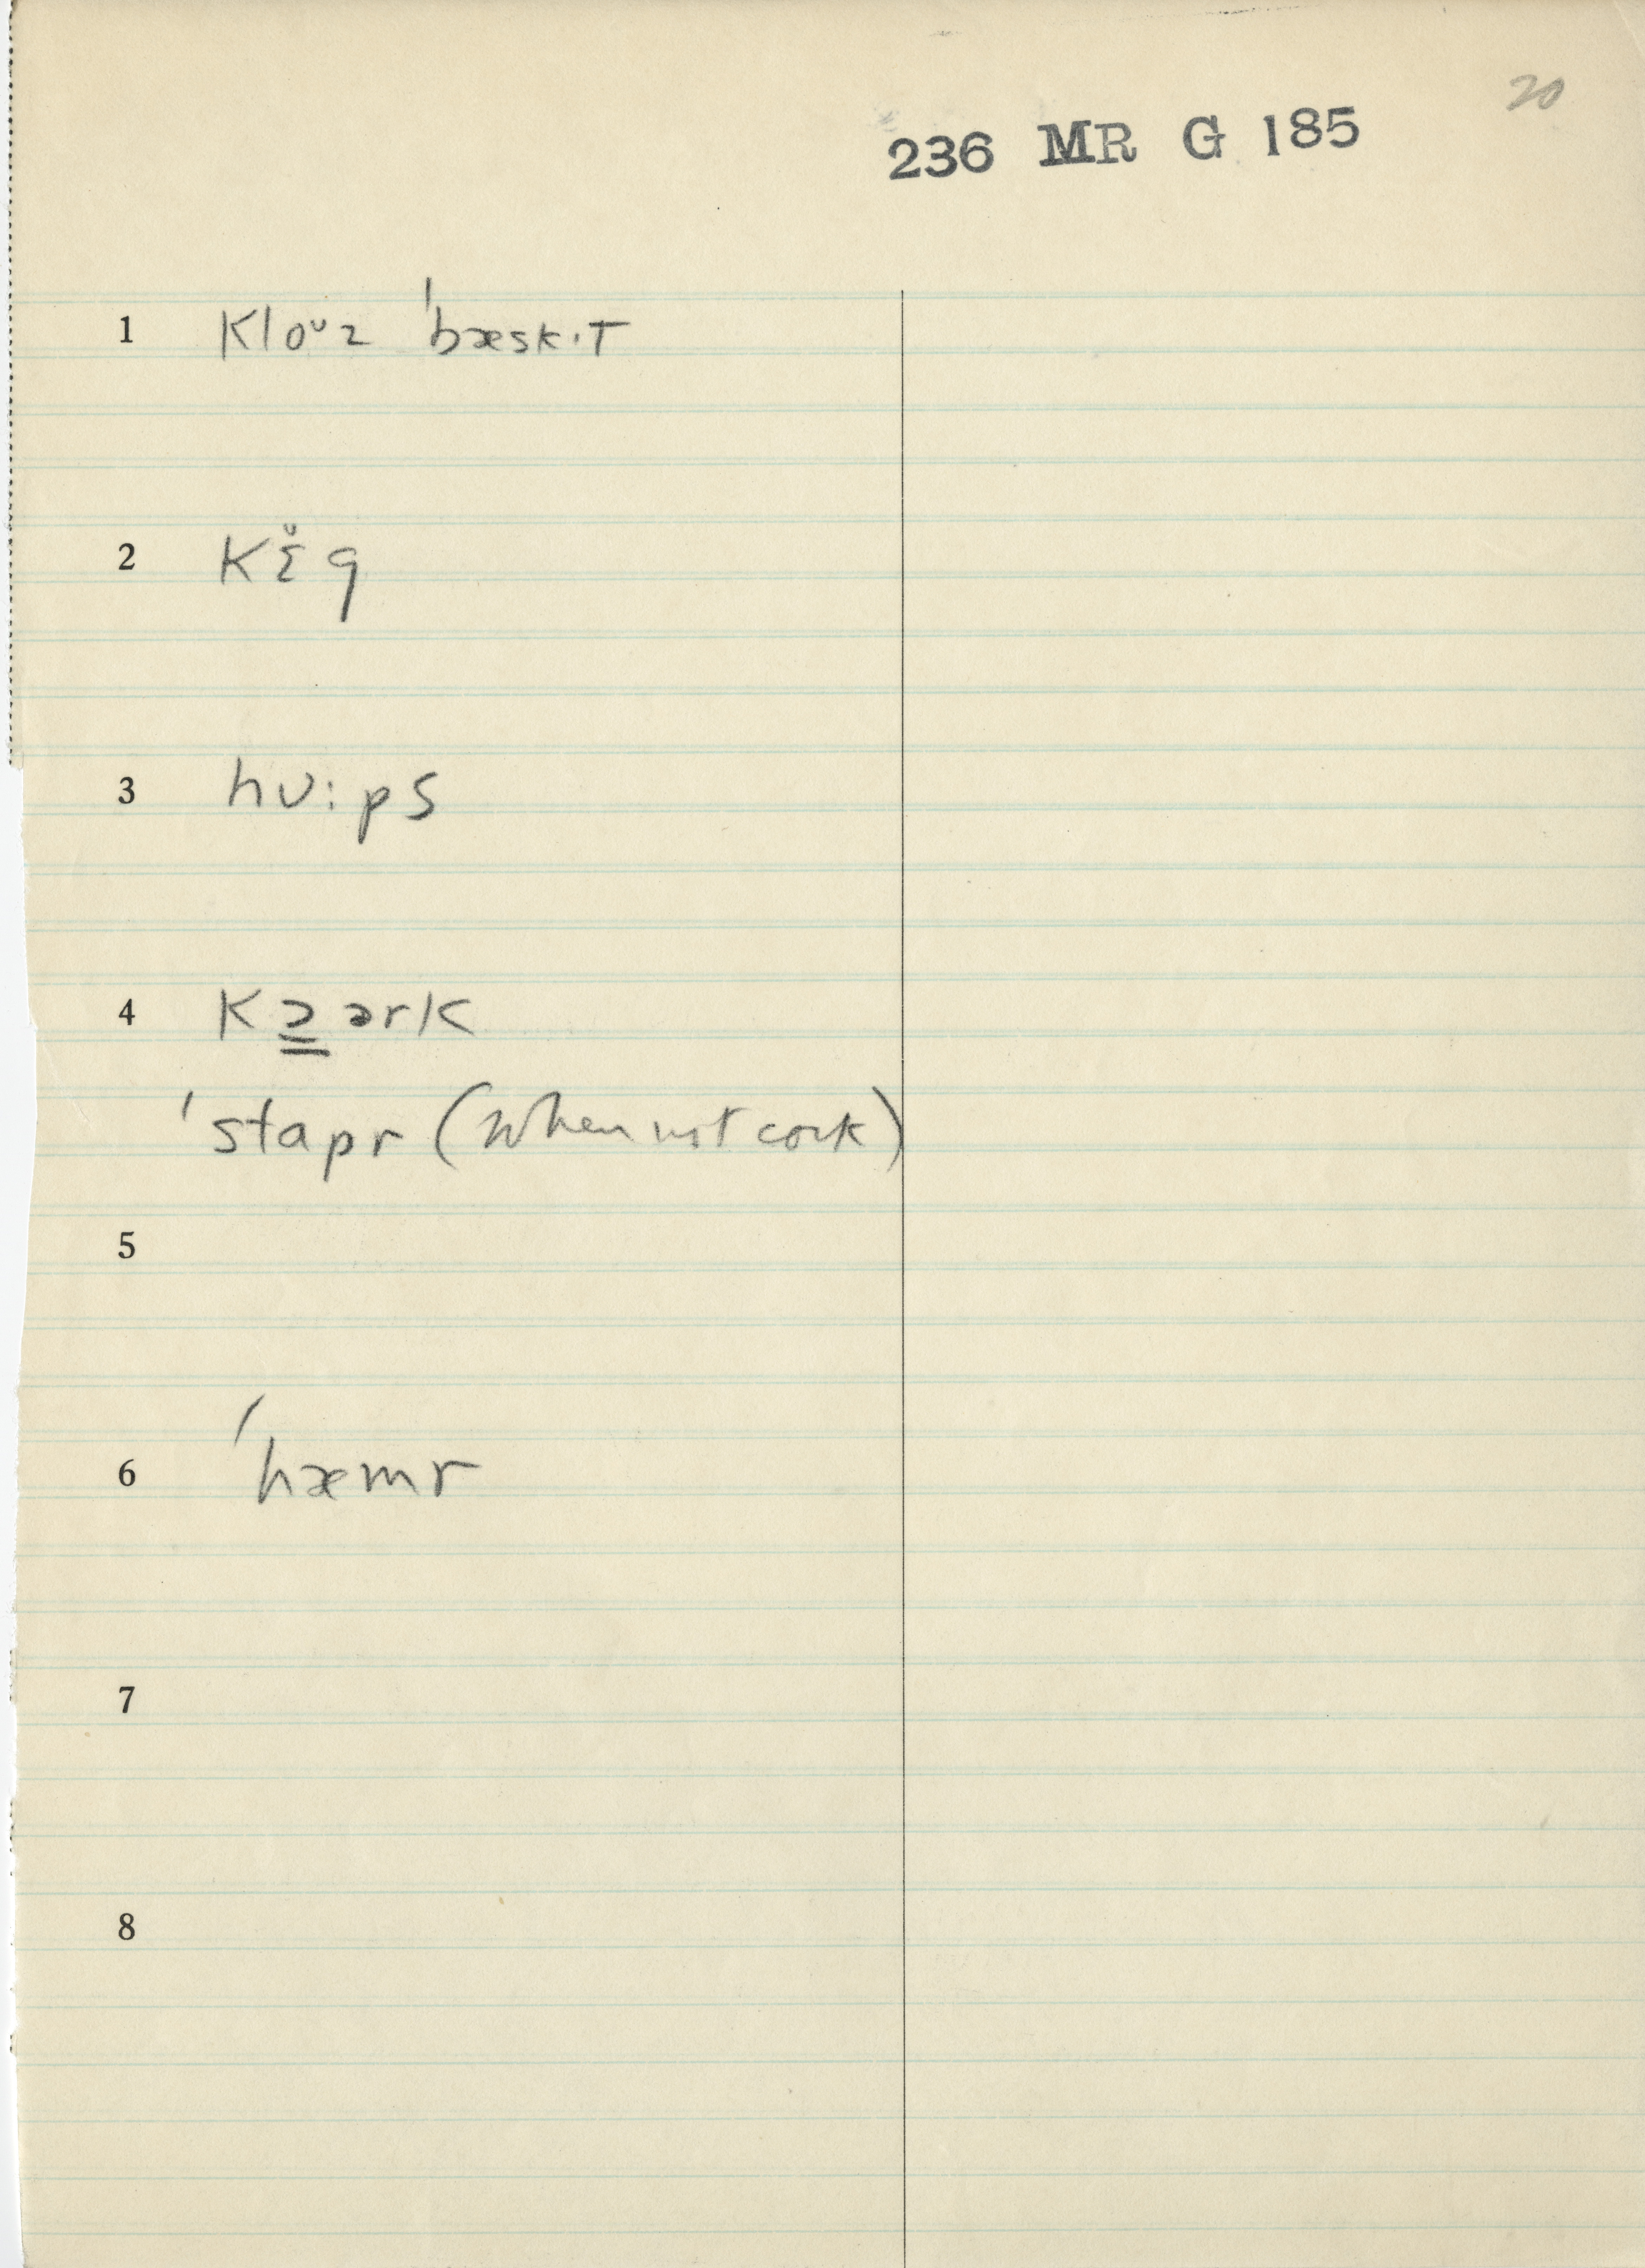 20
236 MR G 185
1 kloᵘz ˈbæskɪt
2 kɛ̆g
3 hʊ:ps
4 kɔ̳ərk
ˈstapr (when not cork)
5
6 ˈhæmr
7
8